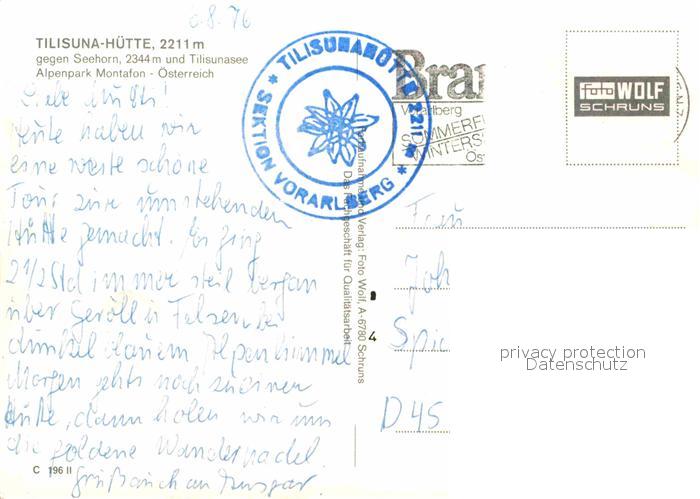 6.8.76
TILISUNA-HÜTTE, 2211 m
gegen Seehorn, 2344 m und Tilisunasee
Alpenpark Montafon - Österreich
Liebe Mutti!
Heute haben wir
eine weite schöne
Tour zur umstehenden
Hütte gemacht. Es ging
2 1/2 Std immer steil bergan
über Geröll u Felsen bei
dunkelblauem Alpenhimmel
Morgen gehts noch zu einer
Hütte, dann holen wir uns
die goldene Wandernadel.
Gruß auch an
C 196 II
TILISUNAHÜTTE 2211 m
SEKTION VORARLBERG
Verlag: Foto Wolf, A-6780 Schruns
Das Fachgeschäft für Qualitätsarbeit
4
Bra
Vorarlberg
SOMMERF
WINTERS
Ös
foto WOLF
SCHRUNS
Frau
Joh
Spic
D 45
privacy protection
Datenschutz